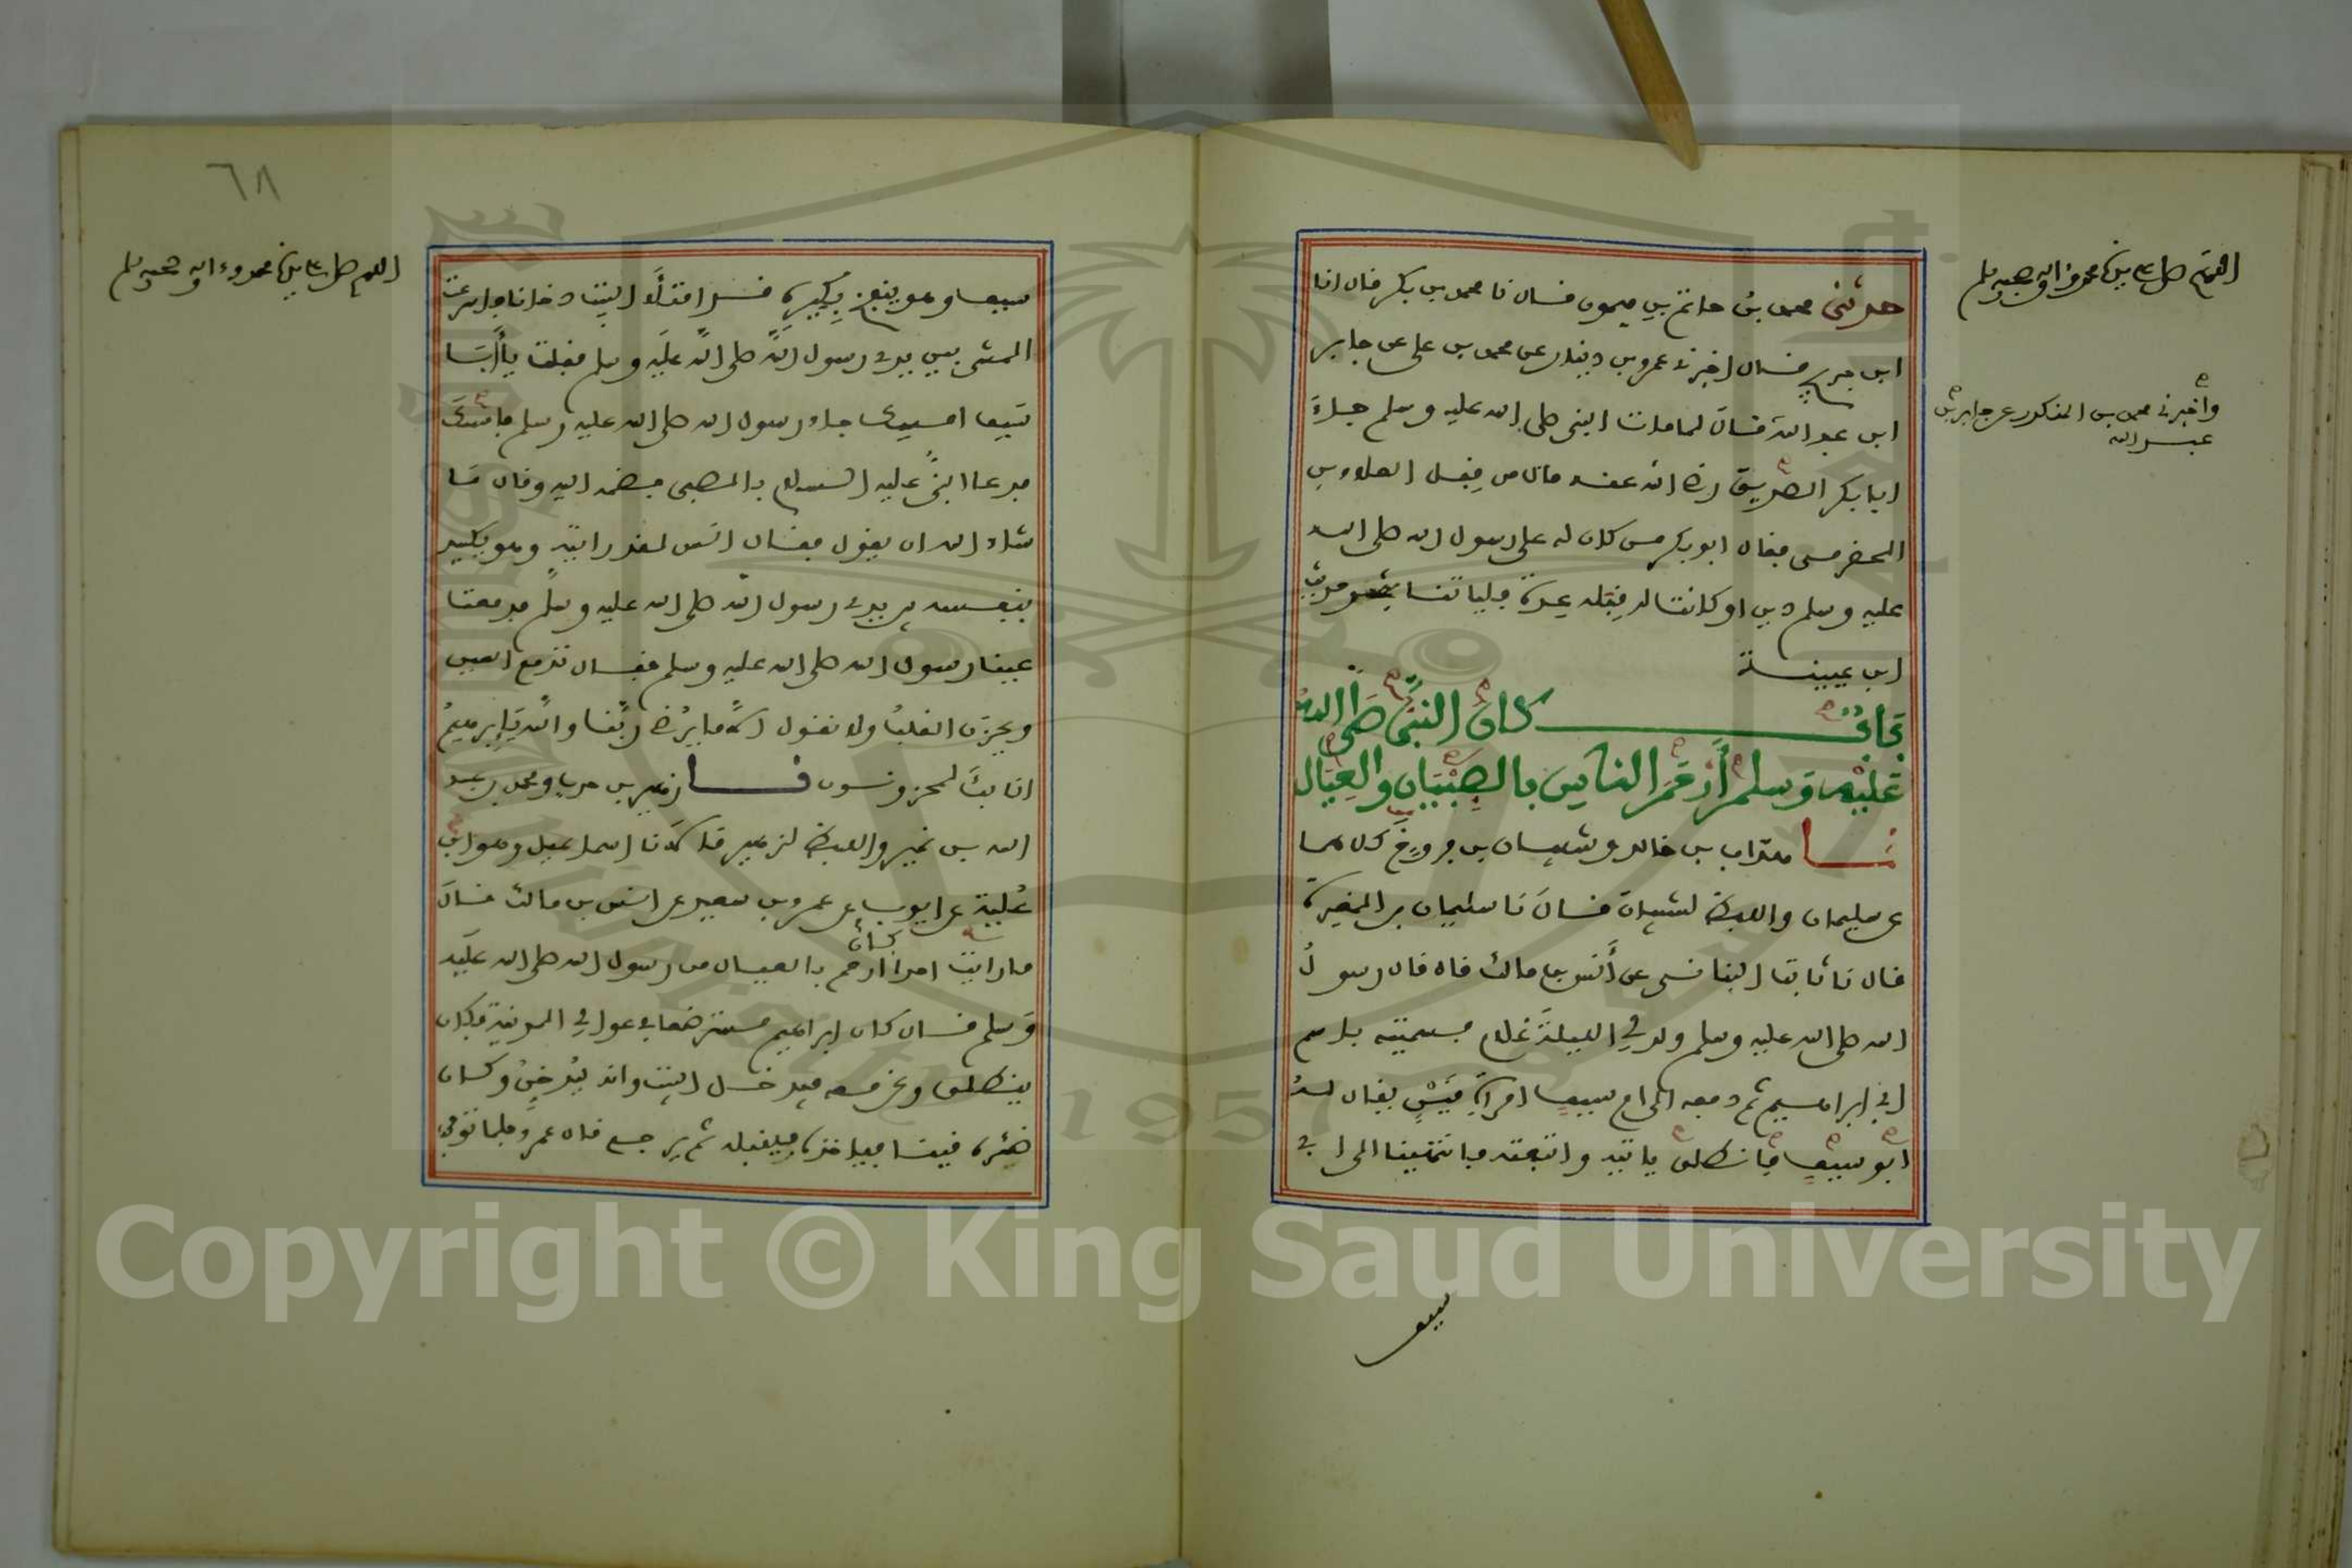 اللهم صل على سيدنا محمد وءاله وصحبه وسلم
حدثني محمد بن حاتم بن ميمون قال نا محمد بن بكر قال انا
ابن جريج قال اخبرني عمرو بن دينار عن محمد بن علي عن جابر
وأخبرني محمد بن المنكدر عن جابر بن
عبد الله
ابن عبد الله قال لما مات النبي صلى الله عليه وسلم جاء
ابا بكر الصديق رضي الله عنه مال من قبل العلاء بن
الحضرمي فقال ابو بكر من كان له على رسول الله صلى الله
عليه وسلم دين او كانت له قبله عدة فلياتنا بنحو حديث
ابن عيينة
باب كان النبي صلى الله
عليه وسلم أرحم الناس بالصبيان والعيال
نا هداب بن خالد وشيبان بن فروخ كلاهما
عن سليمان واللفظ لشيبان قال نا سليمان بن المغيرة
قال نا ثابت البناني عن أنس بن مالك قال قال رسول
الله صلى الله عليه وسلم ولد لي الليلة غلام فسميته باسم
ابي ابراهيم ثم دفعه الى ام سيف امراة قين يقال له
ابو سيف فانطلق ياتيه واتبعته فانتهينا الى ابي
سيف
٦٨
اللهم صل على سيدنا محمد وءاله وصحبه وسلم
سيف وهو ينفخ بكيره قد امتلأ البيت دخانا فاسرعت
المشي بين يدي رسول الله صلى الله عليه وسلم فقلت يا أبا
سيف امسك جاء رسول الله صلى الله عليه وسلم فامسك
فدعا النبي عليه السلام بالصبي فضمه اليه وقال ما
شاء الله ان يقول فقال انس لقد رايته وهو يكيد
بنفسه بين يدي رسول الله صلى الله عليه وسلم فدمعت
عينا رسول الله صلى الله عليه وسلم فقال تدمع العين
ويحزن القلب ولا نقول الا ما يرضي ربنا والله يا ابرهيم
انا بك لمحزونون نا زهير بن حرب ومحمد بن عبد
الله بن نمير واللفظ لزهير قالا نا اسماعيل وهو ابن
علية عن ايوب عن عمرو بن سعيد عن انس بن مالك قال
ما رايت احدا كان ارحم بالعيال من رسول الله صلى الله عليه
وسلم قال كان ابراهيم مسترضعا في عوالي المدينة فكان
ينطلق ونحن معه فيدخل البيت وانه ليدخن وكان
ظئره قينا فياخذه فيقبله ثم يرجع قال عمرو فلما توفي